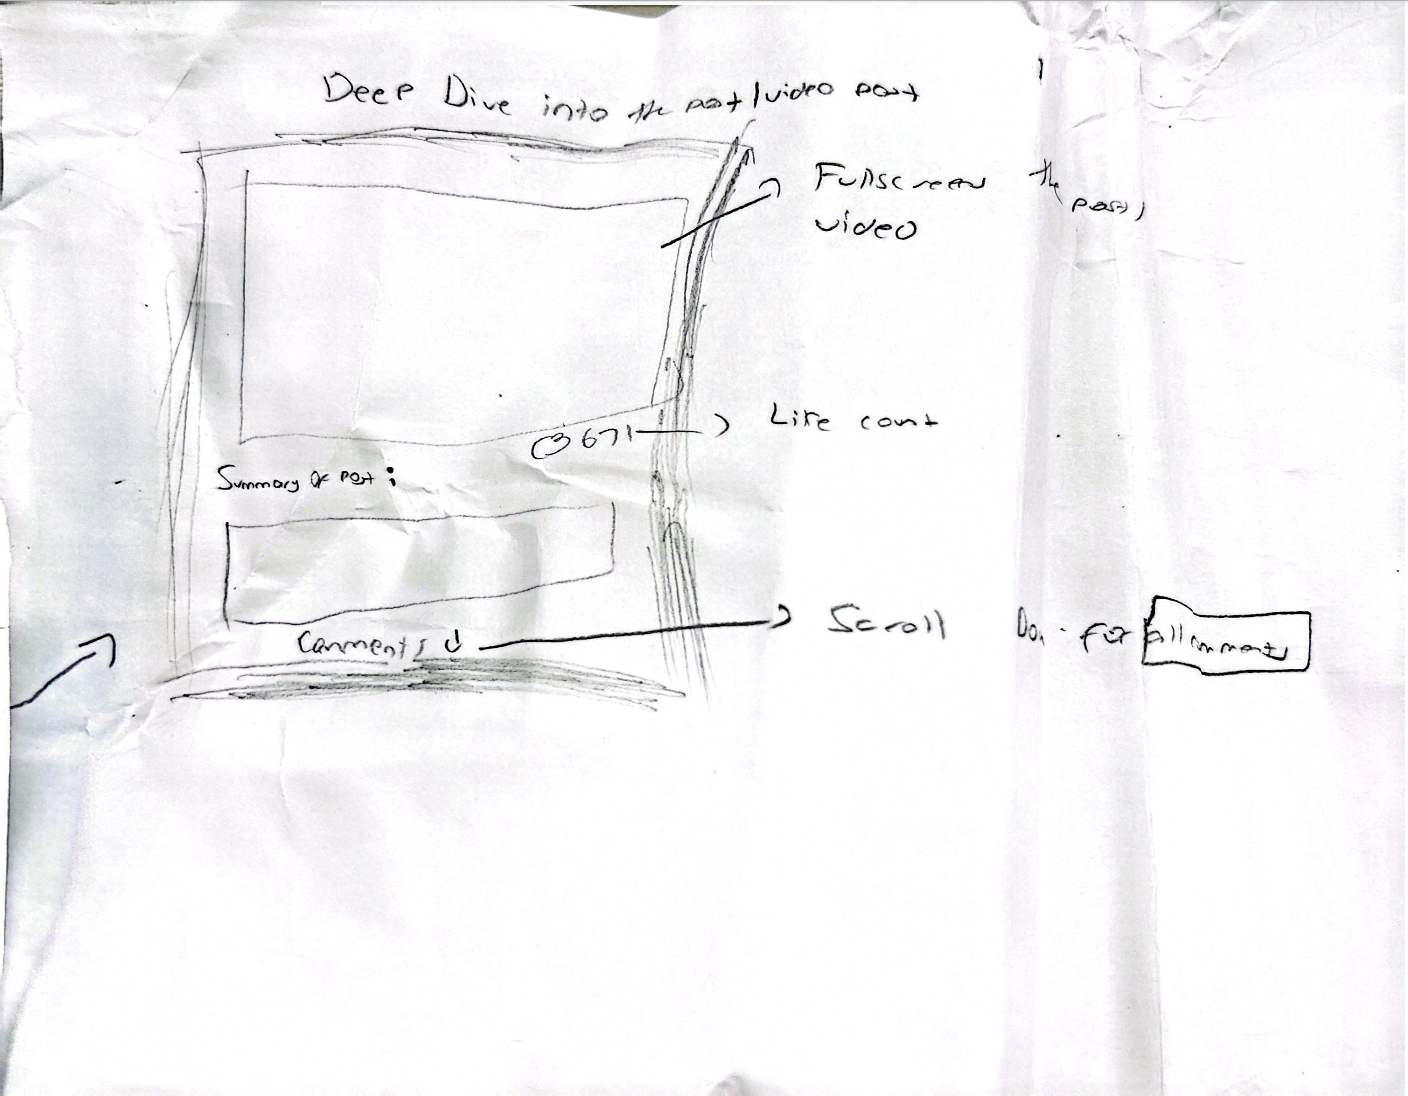 Deep Dive into the post/video post
Fullscreen the post/
video
3671 → Like count
Summary of post:
Comments ↓ → Scroll for all comments